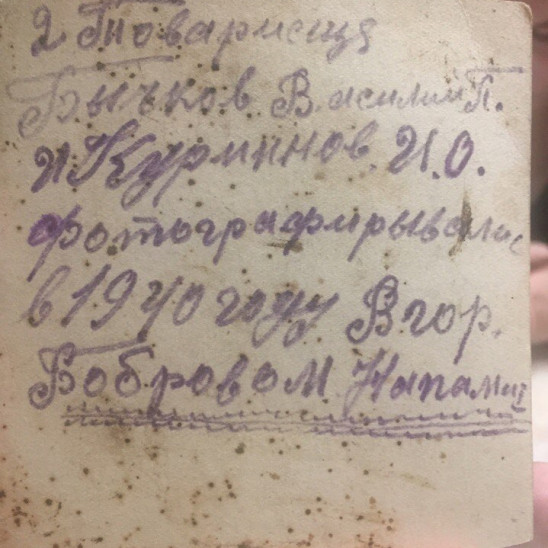 2 Товармеща
Бычков Василий П.
и Курминов И.О.
фотографмрывалис
в 1940 году В гор.
Бобровом Напамит